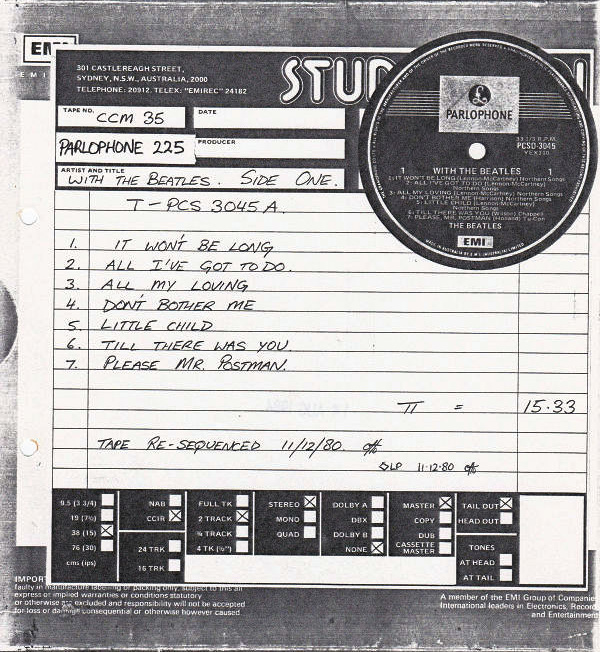 EMI
EMI
301 CASTLEREAGH STREET,
SYDNEY, N.S.W., AUSTRALIA, 2000
TELEPHONE: 20912. TELEX: "EMIREC" 24182
TAPE NO. CCM 35
DATE
PARLOPHONE 225
PRODUCER
ARTIST AND TITLE
WITH THE BEATLES. SIDE ONE.
T-PCS 3045 A.
PARLOPHONE
33 1/3 R.P.M.
PCSO-3045
YEX110
1 WITH THE BEATLES 1
1. IT WON'T BE LONG (Lennon-McCartney) Northern Songs
2. ALL I'VE GOT TO DO (Lennon-McCartney)
Northern Songs
3. ALL MY LOVING (Lennon-McCartney) Northern Songs
4. DON'T BOTHER ME (Harrison) Northern Songs
5. LITTLE CHILD (Lennon-McCartney)
Northern Songs
6. TILL THERE WAS YOU (Willson) Chappell
7. PLEASE, MR. POSTMAN (Holland) Tu-Con
THE BEATLES
EMI
1. IT WON'T BE LONG
2. ALL I'VE GOT TO DO.
3. ALL MY LOVING
4. DON'T BOTHER ME
5. LITTLE CHILD
6. TILL THERE WAS YOU.
7. PLEASE MR. POSTMAN.
= 15.33
TAPE RE-SEQUENCED 11/12/80.
LP 11.12.80
9.5 (3 3/4)
19 (7½)
38 (15)
76 (30)
cms (ips)
NAB
CCIR
24 TRK
16 TRK
FULL TK
2 TRACK
¼ TRACK
4 TK (½")
STEREO
MONO
QUAD
DOLBY A
DBX
DOLBY B
NONE
MASTER
COPY
DUB
CASSETTE
MASTER
TAIL OUT
HEAD OUT
TONES
AT HEAD
AT TAIL
faulty in manufacture labelling or packing only, subject to this all
express or implied warranties or conditions statutory
or otherwise are excluded and responsibility will not be accepted
for loss or damage consequential or otherwise however caused
A member of the EMI Group of Companie
International leaders in Electronics, Record
and Entertainment